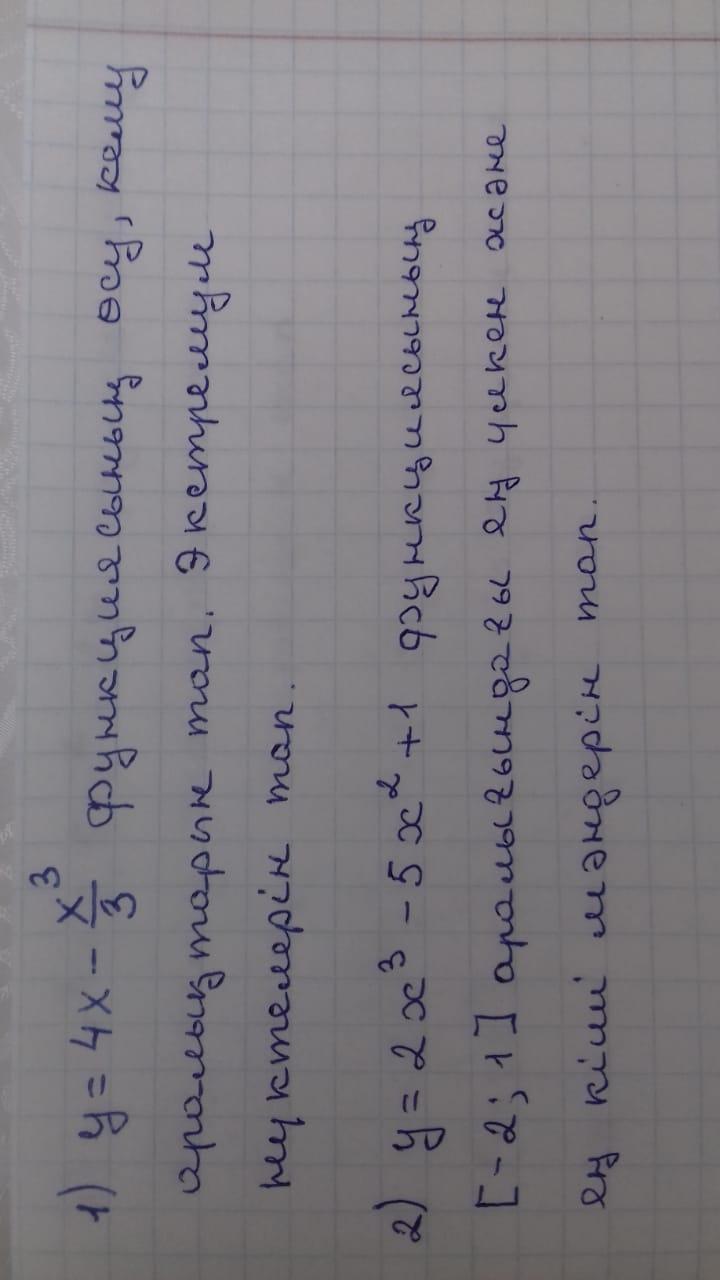 1) y = 4x - x³/3 функциясының өсу, кему
аралықтарын тап. Экстремум
нүктелерін тап.
2) y = 2x³ - 5x² + 1 функциясының
[-2; 1] аралығындағы ең үлкен және
ең кіші мәндерін тап.